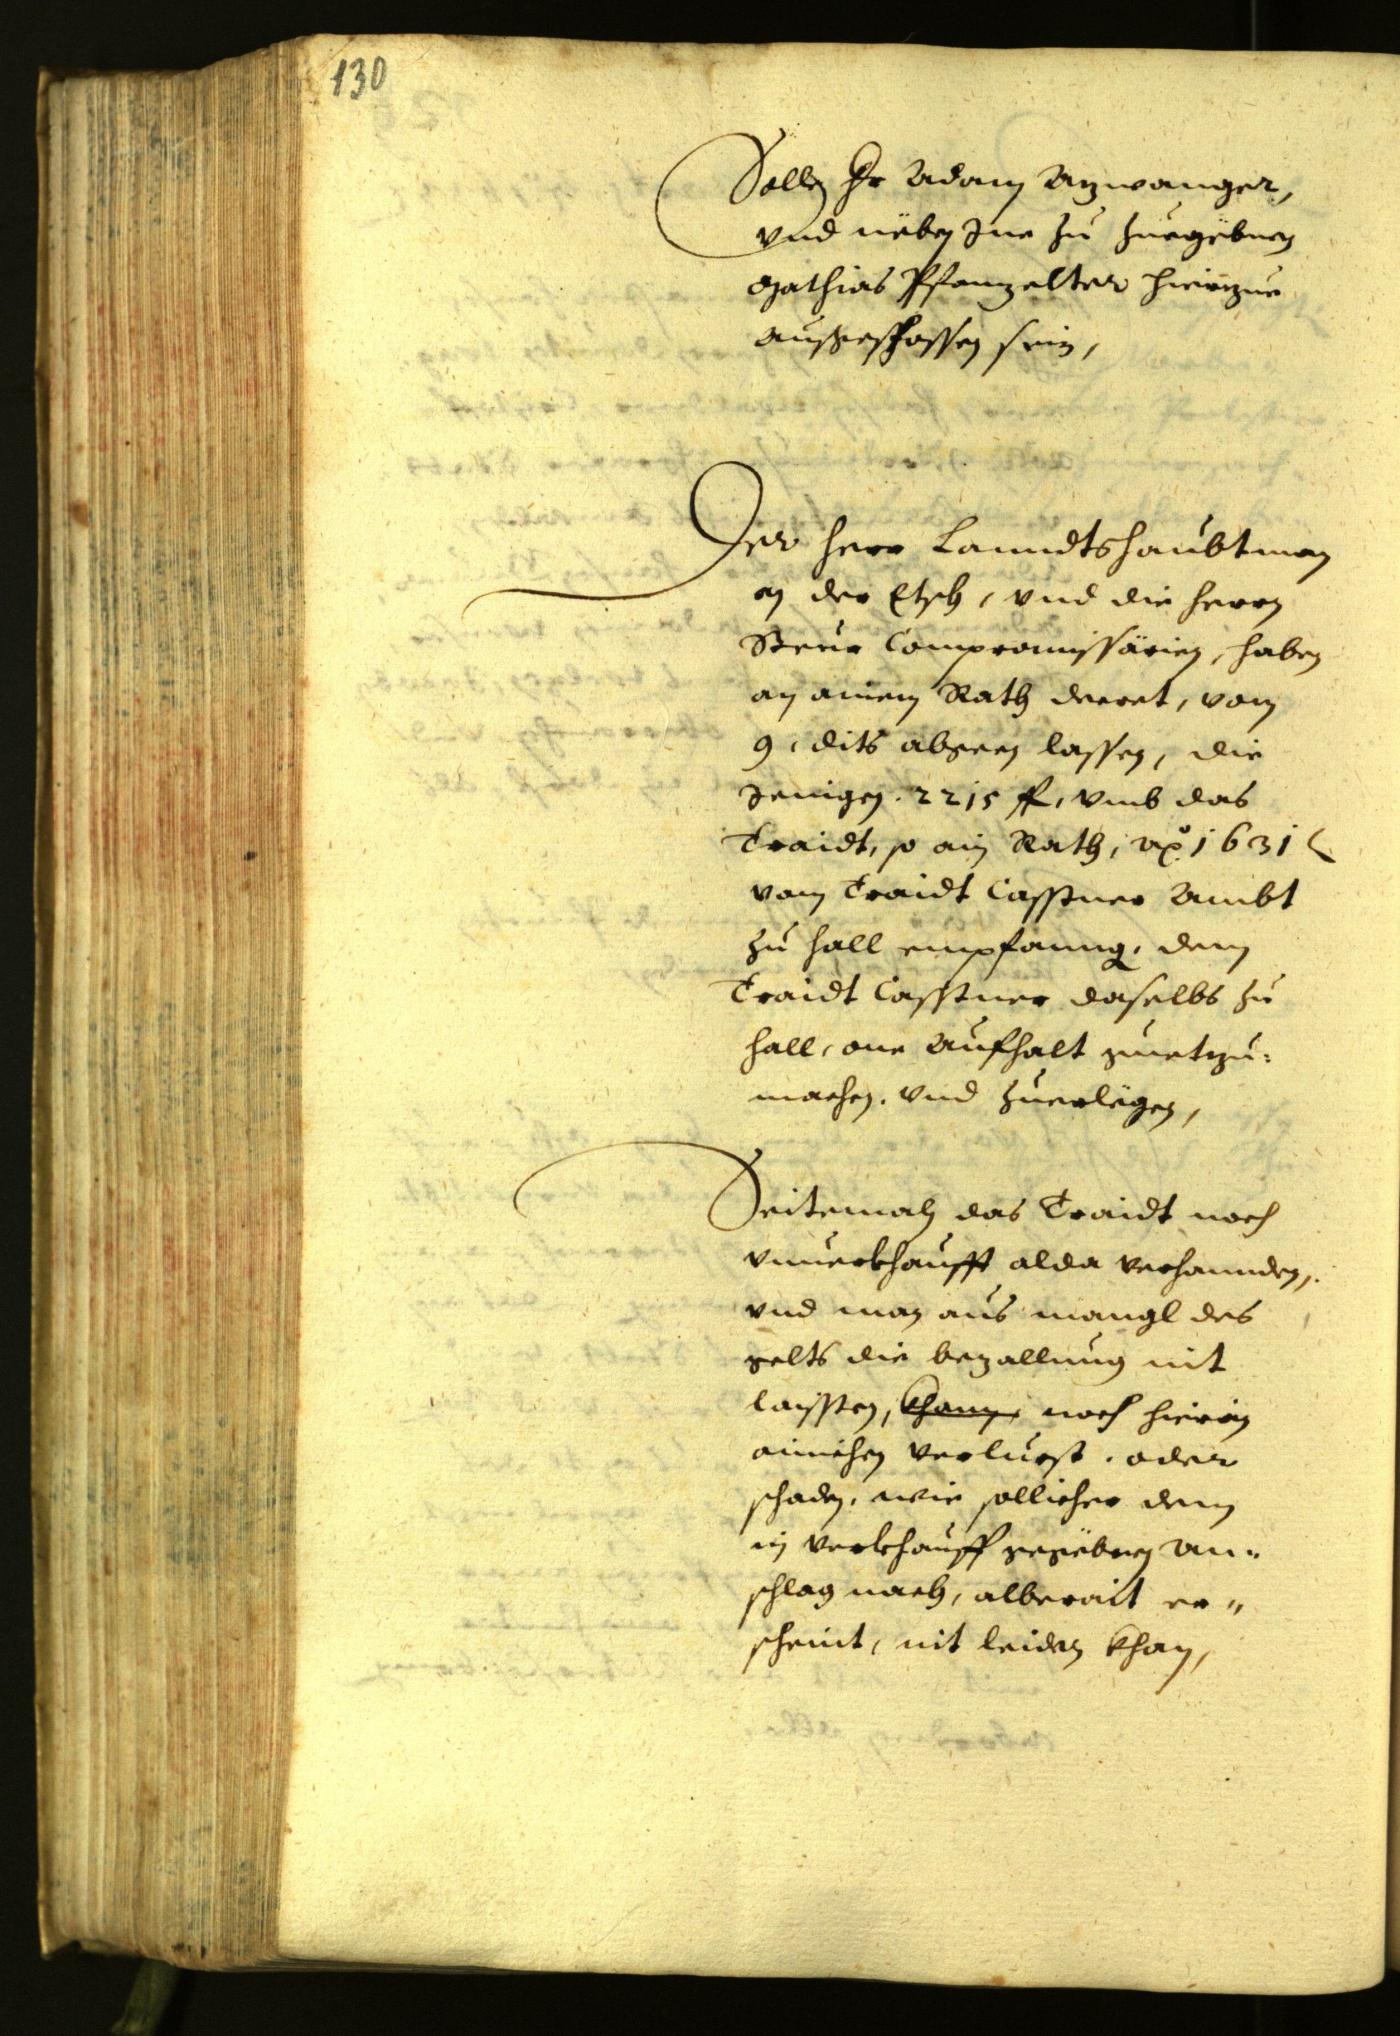 130
Sollen Hr Adam Azwanger,
vnd nëben Jne zu zuegëbnen
Mathias Pfanzelter hierzue
ausgeschossen sein,
Der Herr Lanndtshaubtman
an der Etsch, vnd die Herrn
Steur Compromissärien, haben
an ainem Rath decret, vom
9. dits abgeen lassen, die
Jenigen. 2215 fl, vmb das
Traidt, so ain Rath, Ao 1631
vom Traidt Casstner Ambt
zu Hall empfanng. dem
Traidt Casstner daselbs zu
Hall, one Aufhalt guetzu=
machen. vnd zuerlëgen,
Seitemaln das Traidt noch
vnuerkhaufft alda verhannden,
vnd man aus mangl des
gelts die bezallung nit
laissten, khann noch hierin
ainichen verlurst. oder
schaden, wie sollicher dem
in verkhauff gegëbnen An=
schlag nach, alberait er=
scheint, nit leiden khan,